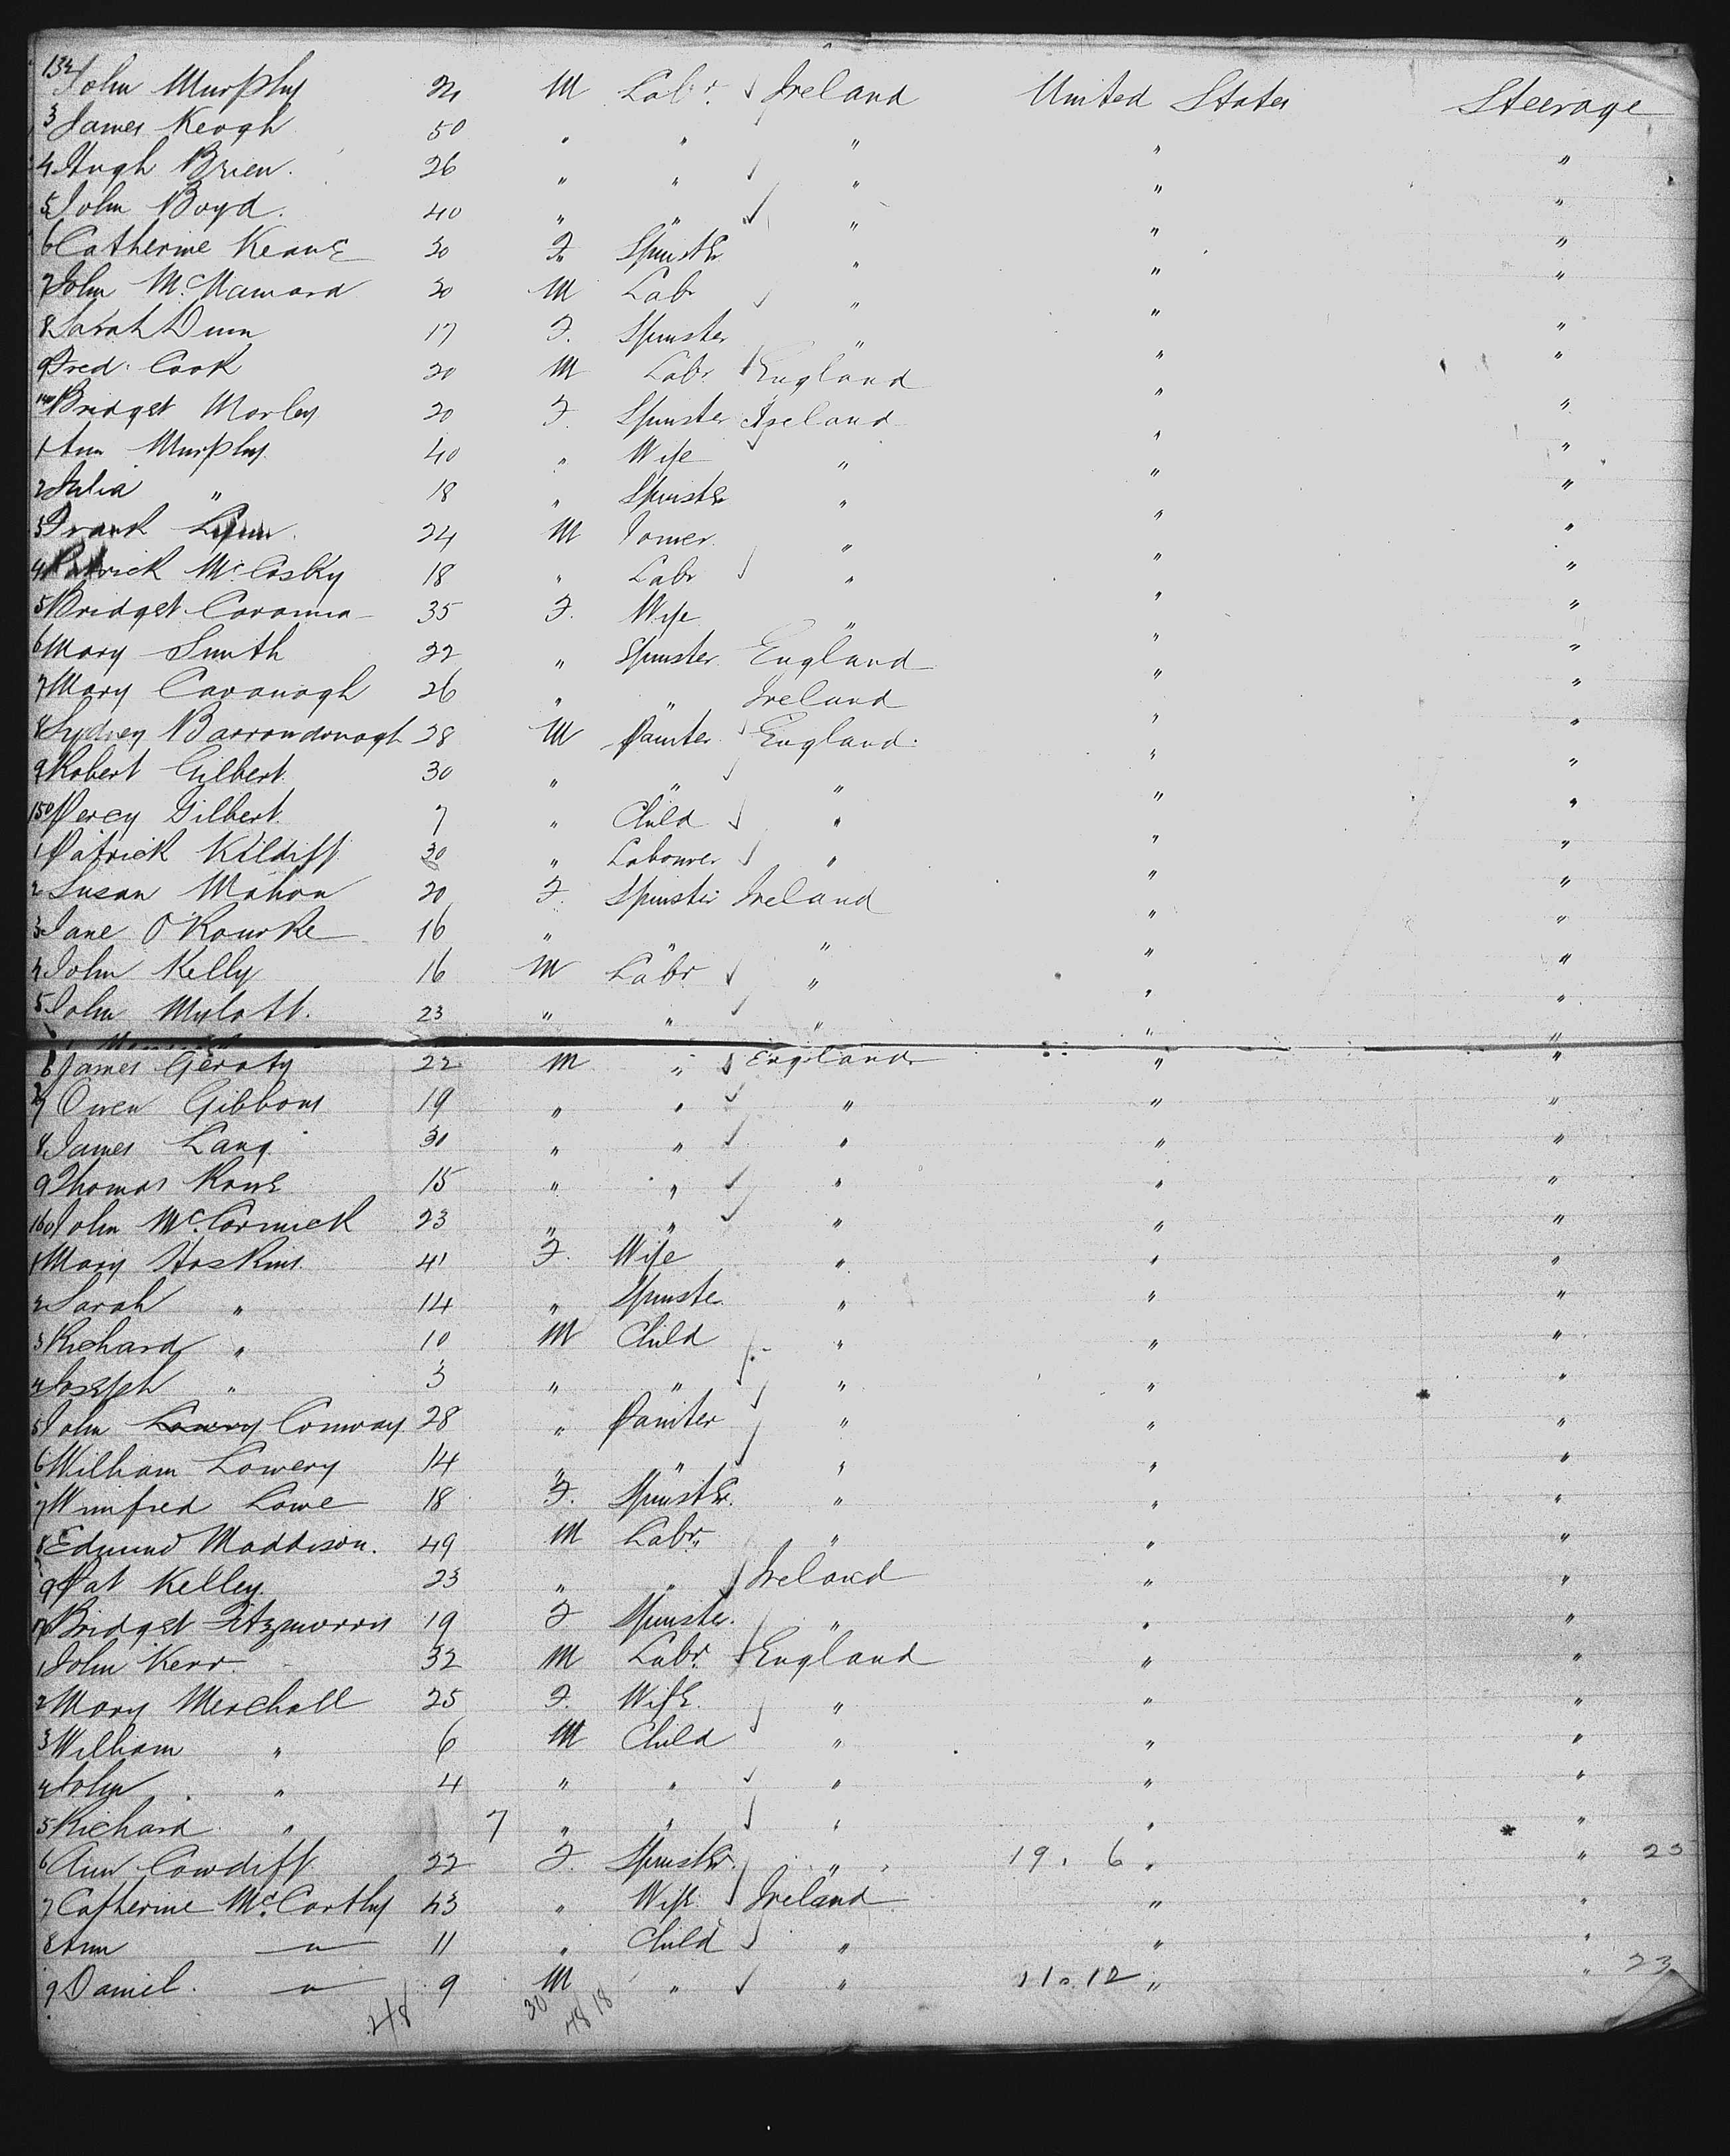 132 John Murphy 21 M Labr. Ireland United States Steerage
3 James Keogh 50 " " " " "
4 Hugh Brien. 26 " " " " "
5 John Boyd. 40 " " " " "
6 Catherine Keane 30 F. Spinster " " "
7 John McNamara 30 M Labr " " "
8 Sarah Dunn 17 F. Spinster " " "
9 Fred. Cook 20 M Labr England " "
140 Bridget Morley 20 F. Spinster Ireland " "
1 Ann Murphy 40 " Wife " " "
2 Julia " 18 " Spinster " " "
3 Frank 24 M Joiner " " "
4 Patrick McCosky 18 " Labr " " "
5 Bridget Cavanna 35 F. Wife " " "
6 Mary Smith 22 " Spinster England " "
7 Mary Cavanagh 26 " " Ireland " "
8 Sydney 28 M Painter England. " "
9 Robert Gilbert. 30 " " " " "
150 Percy Gilbert. 7 " Child " " "
1 Patrick Kildiff 30 " Labourer " " "
2 Susan Mahon 20 F. Spinster Ireland " "
3 Jane O'Rourke 16 " " " " "
4 John Kelly 16 M Labr " " "
5 John Mylott. 23 " " " " "
6 James Geraty 22 M " England " "
7 Owen Gibbons 19 " " " " "
8 James Lang 30 " " " " "
9 Thomas Rowe 15 " " " " "
160 John McCormick 23 " " " " "
1 Mary Hoskins. 41 F. Wife " " "
2 Sarah " 14 " Spinster " " "
3 Richard " 10 M Child " " "
4 Joseph " 3 " " " " "
5 John Lowry Conway 28 " Painter " " "
6 William Lowery 14 " " " " "
7 Winifred Lowe 18 F. Spinster. " " "
8 Edmund Maddison. 49 M Labr. " " "
9 Pat Kelley. 23 " " Ireland " "
170 Bridget Fitzmorris 19 F Spinster. " " "
1 John Kerr. 32 M Labr. England " "
2 Mary Merchall 25 F. Wife. " " "
3 William " 6 M Child " " "
4 John " 4 " " " " "
5 Richard " 7 " " " " "
6 Ann Cowdiff 22 F. Spinster. " 19. 6 " " 23
7 Catherine McCarthy 43 " Wife Ireland " "
8 Ann " 11 " Child " " "
9 Daniel. " 9 M " " 11.12 " " 23
48 30 18
48